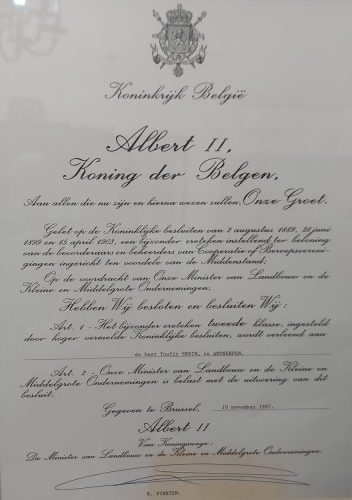 Koninkrijk België
Albert II,
Koning der Belgen,
Aan allen die nu zijn en hierna wezen zullen, Onze Groet.
Gelet op de Koninklijke besluiten van 7 augustus 1889, 28 juni
1899 en 15 april 1903, een bijzonder ereteken instellend ter beloning
van de bevorderaars en beheerders van Cooperatie of Beroepsvereni-
gingen ingericht ten voordele van de Middenstand.
Op de voordracht van Onze Minister van Landbouw en de
Kleine en Middelgrote Ondernemingen.
Hebben Wij besloten en besluiten Wij :
Art. 1 - Het bijzonder ereteken tweede klasse, ingesteld
door hoger vermelde Koninklijke besluiten, wordt verleend aan
de heer Toufic SNEIH, te ANTWERPEN.
Art. 2 - Onze Minister van Landbouw en de Kleine en
Middelgrote Ondernemingen is belast met de uitvoering van dit
besluit.
Gegeven te Brussel, 10 november 1997.
Albert II
Van Koningswege :
De Minister van Landbouw en de Kleine en Middelgrote Ondernemingen.
K. PINXTEN.